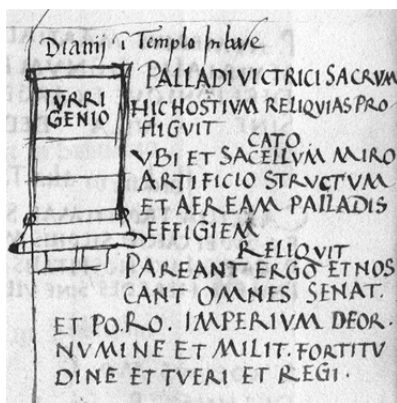 Dianij i Templo in base
TVRRI
GENIO
PALLADI VICTRICI SACRVM
HIC HOSTIVM RELIQVIAS PRO
FLIGVIT
CATO.
VBI ET SACELLVM MIRO
ARTIFICIO STRVCTVM
ET AEREAM PALLADIS
EFFIGIEM
RELIQVIT
PAREANT ERGO ET NOS
CANT OMNES SENAT.
ET PO.RO. IMPERIVM DEOR.
NVMINE ET MILIT. FORTITV
DINE ET TVERI ET REGI.